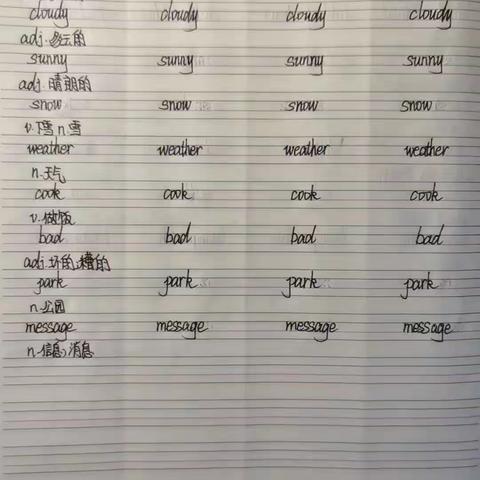 cloudy cloudy cloudy cloudy
adj.多云的
sunny sunny sunny sunny
adj.晴朗的
snow snow snow snow
v.下雪 n.雪
weather weather weather weather
n.天气
cook cook cook cook
v.做饭
bad bad bad bad
adj.坏的,糟的
park park park park
n.公园
message message message message
n.信息,消息